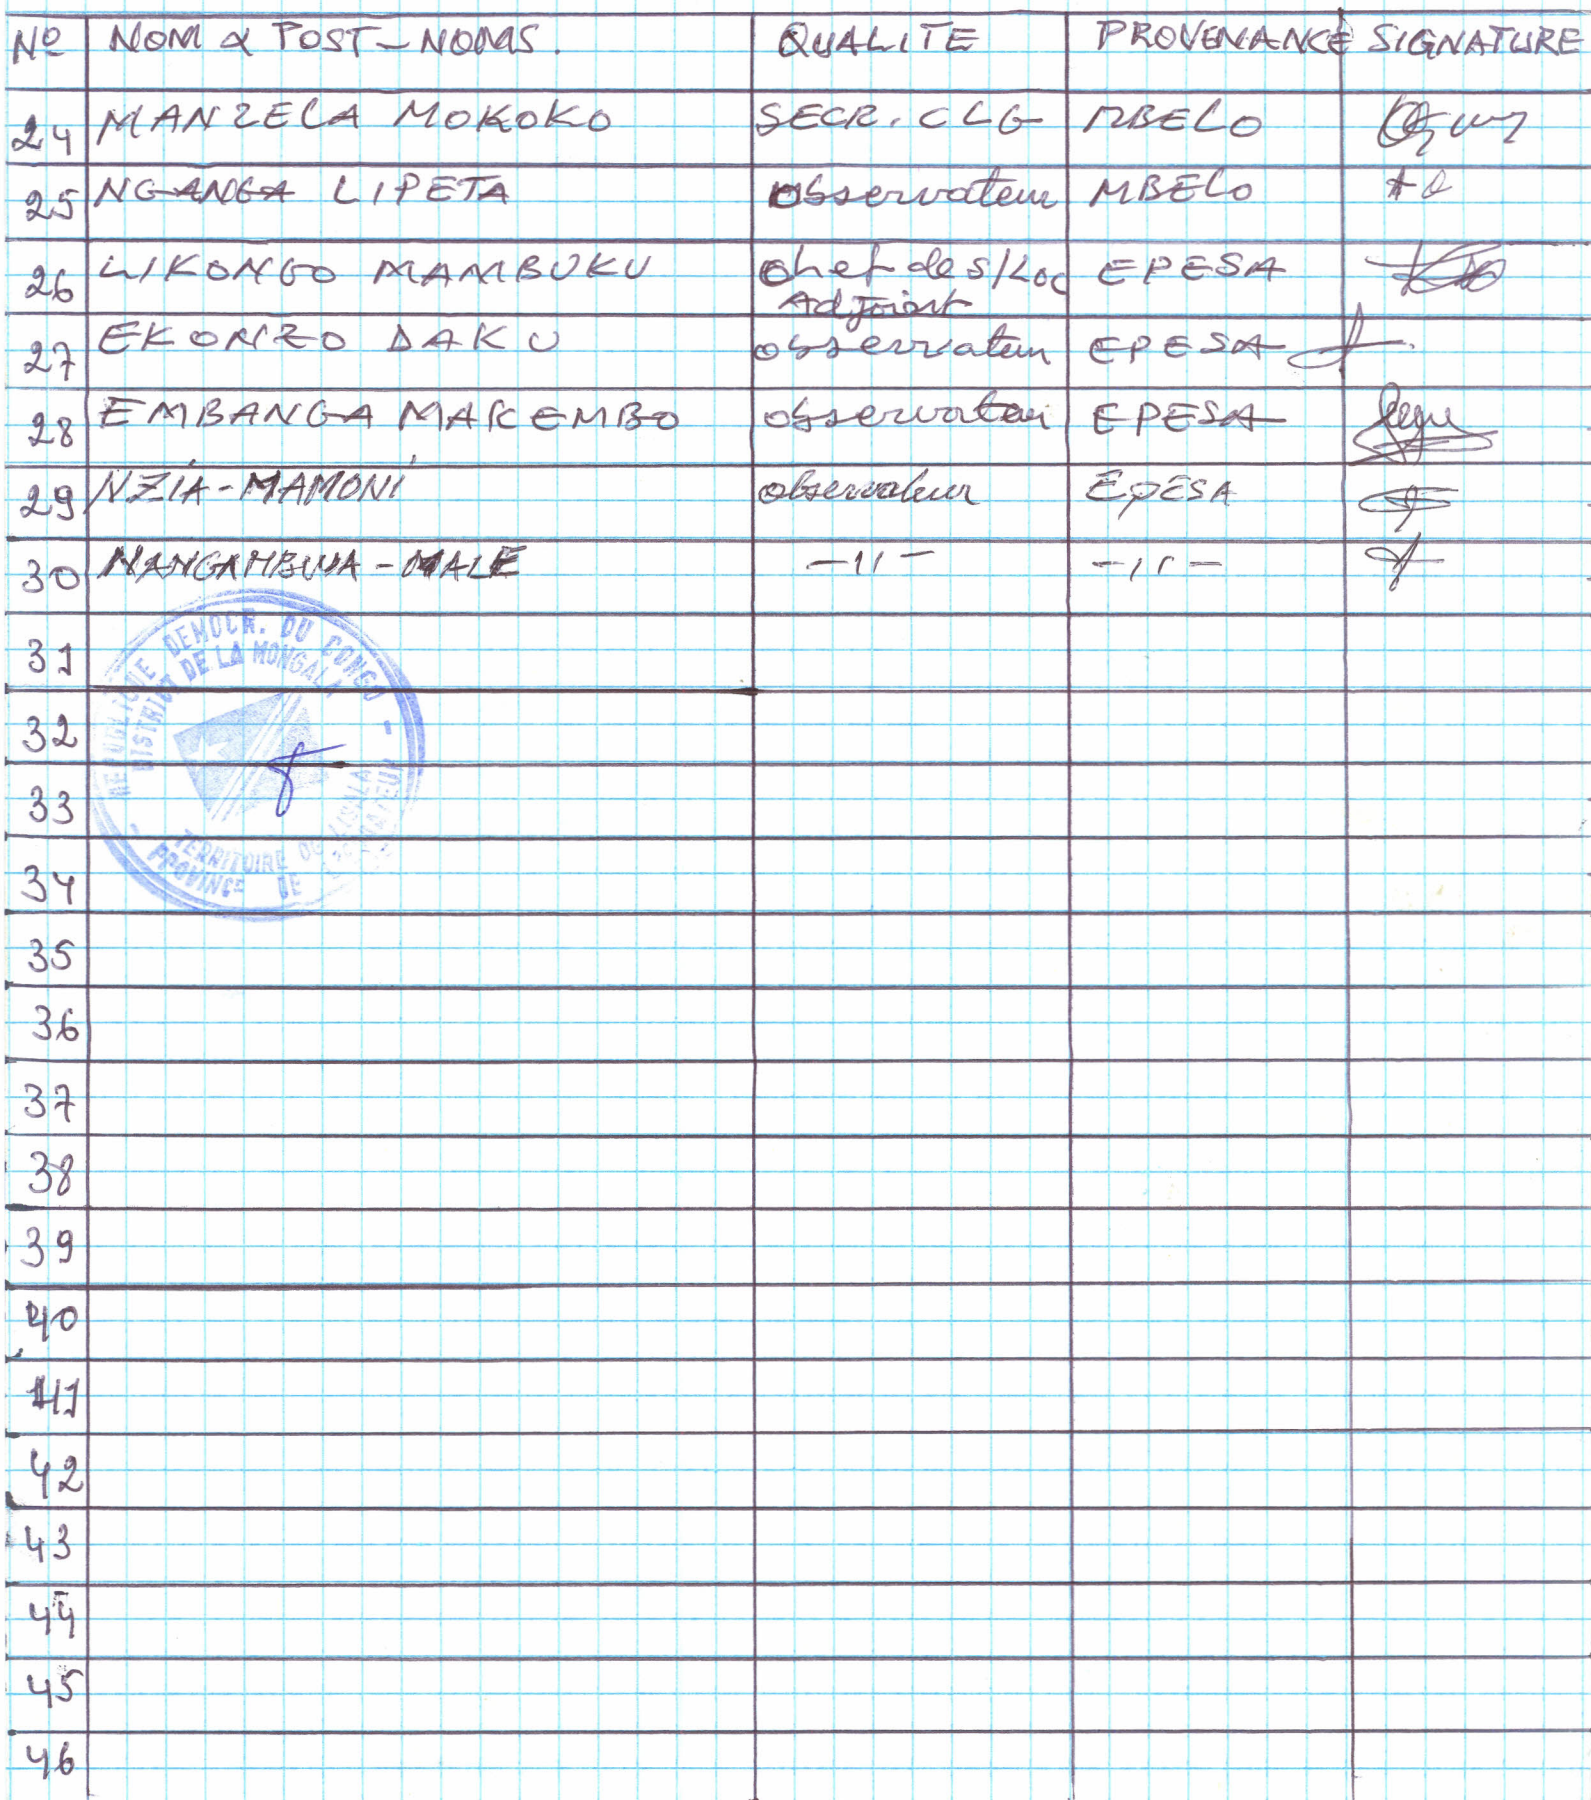 No NOM & POST-NOMS. QUALITE PROVENANCE SIGNATURE
24 MANZELA MOKOKO SECR. CLG MBELO
25 NGANGA LIPETA Observateur MBELO
26 LIKONGO MAMBUKU Chef de s/Loc EPESA
Adjoint
27 EKONZO DAKU observateur EPESA
28 EMBANGA MAKEMBO observateur EPESA
29 NZIA-MAMONI observateur EPESA
30 NANGAMBWA-MALE -11- -11-
31
32
33
34
35
36
37
38
39
40
41
42
43
44
45
46
REPUBLIQUE DEMOCR. DU CONGO -
DISTRICT DE LA MONGALA
TERRITOIRE DE LISALA
PROVINCE DE L'EQUATEUR